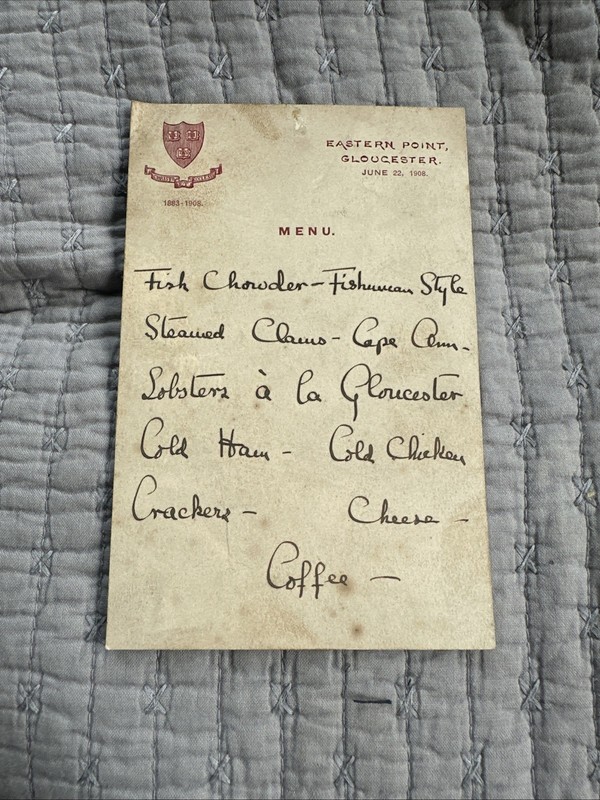 EASTERN POINT,
GLOUCESTER.
JUNE 22, 1908.
1883-1908.
MENU.
Fish Chowder - Fisherman Style
Steamed Clams - Cape Ann -
Lobsters à la Gloucester
Cold Ham - Cold Chicken
Crackers - Cheese -
Coffee -